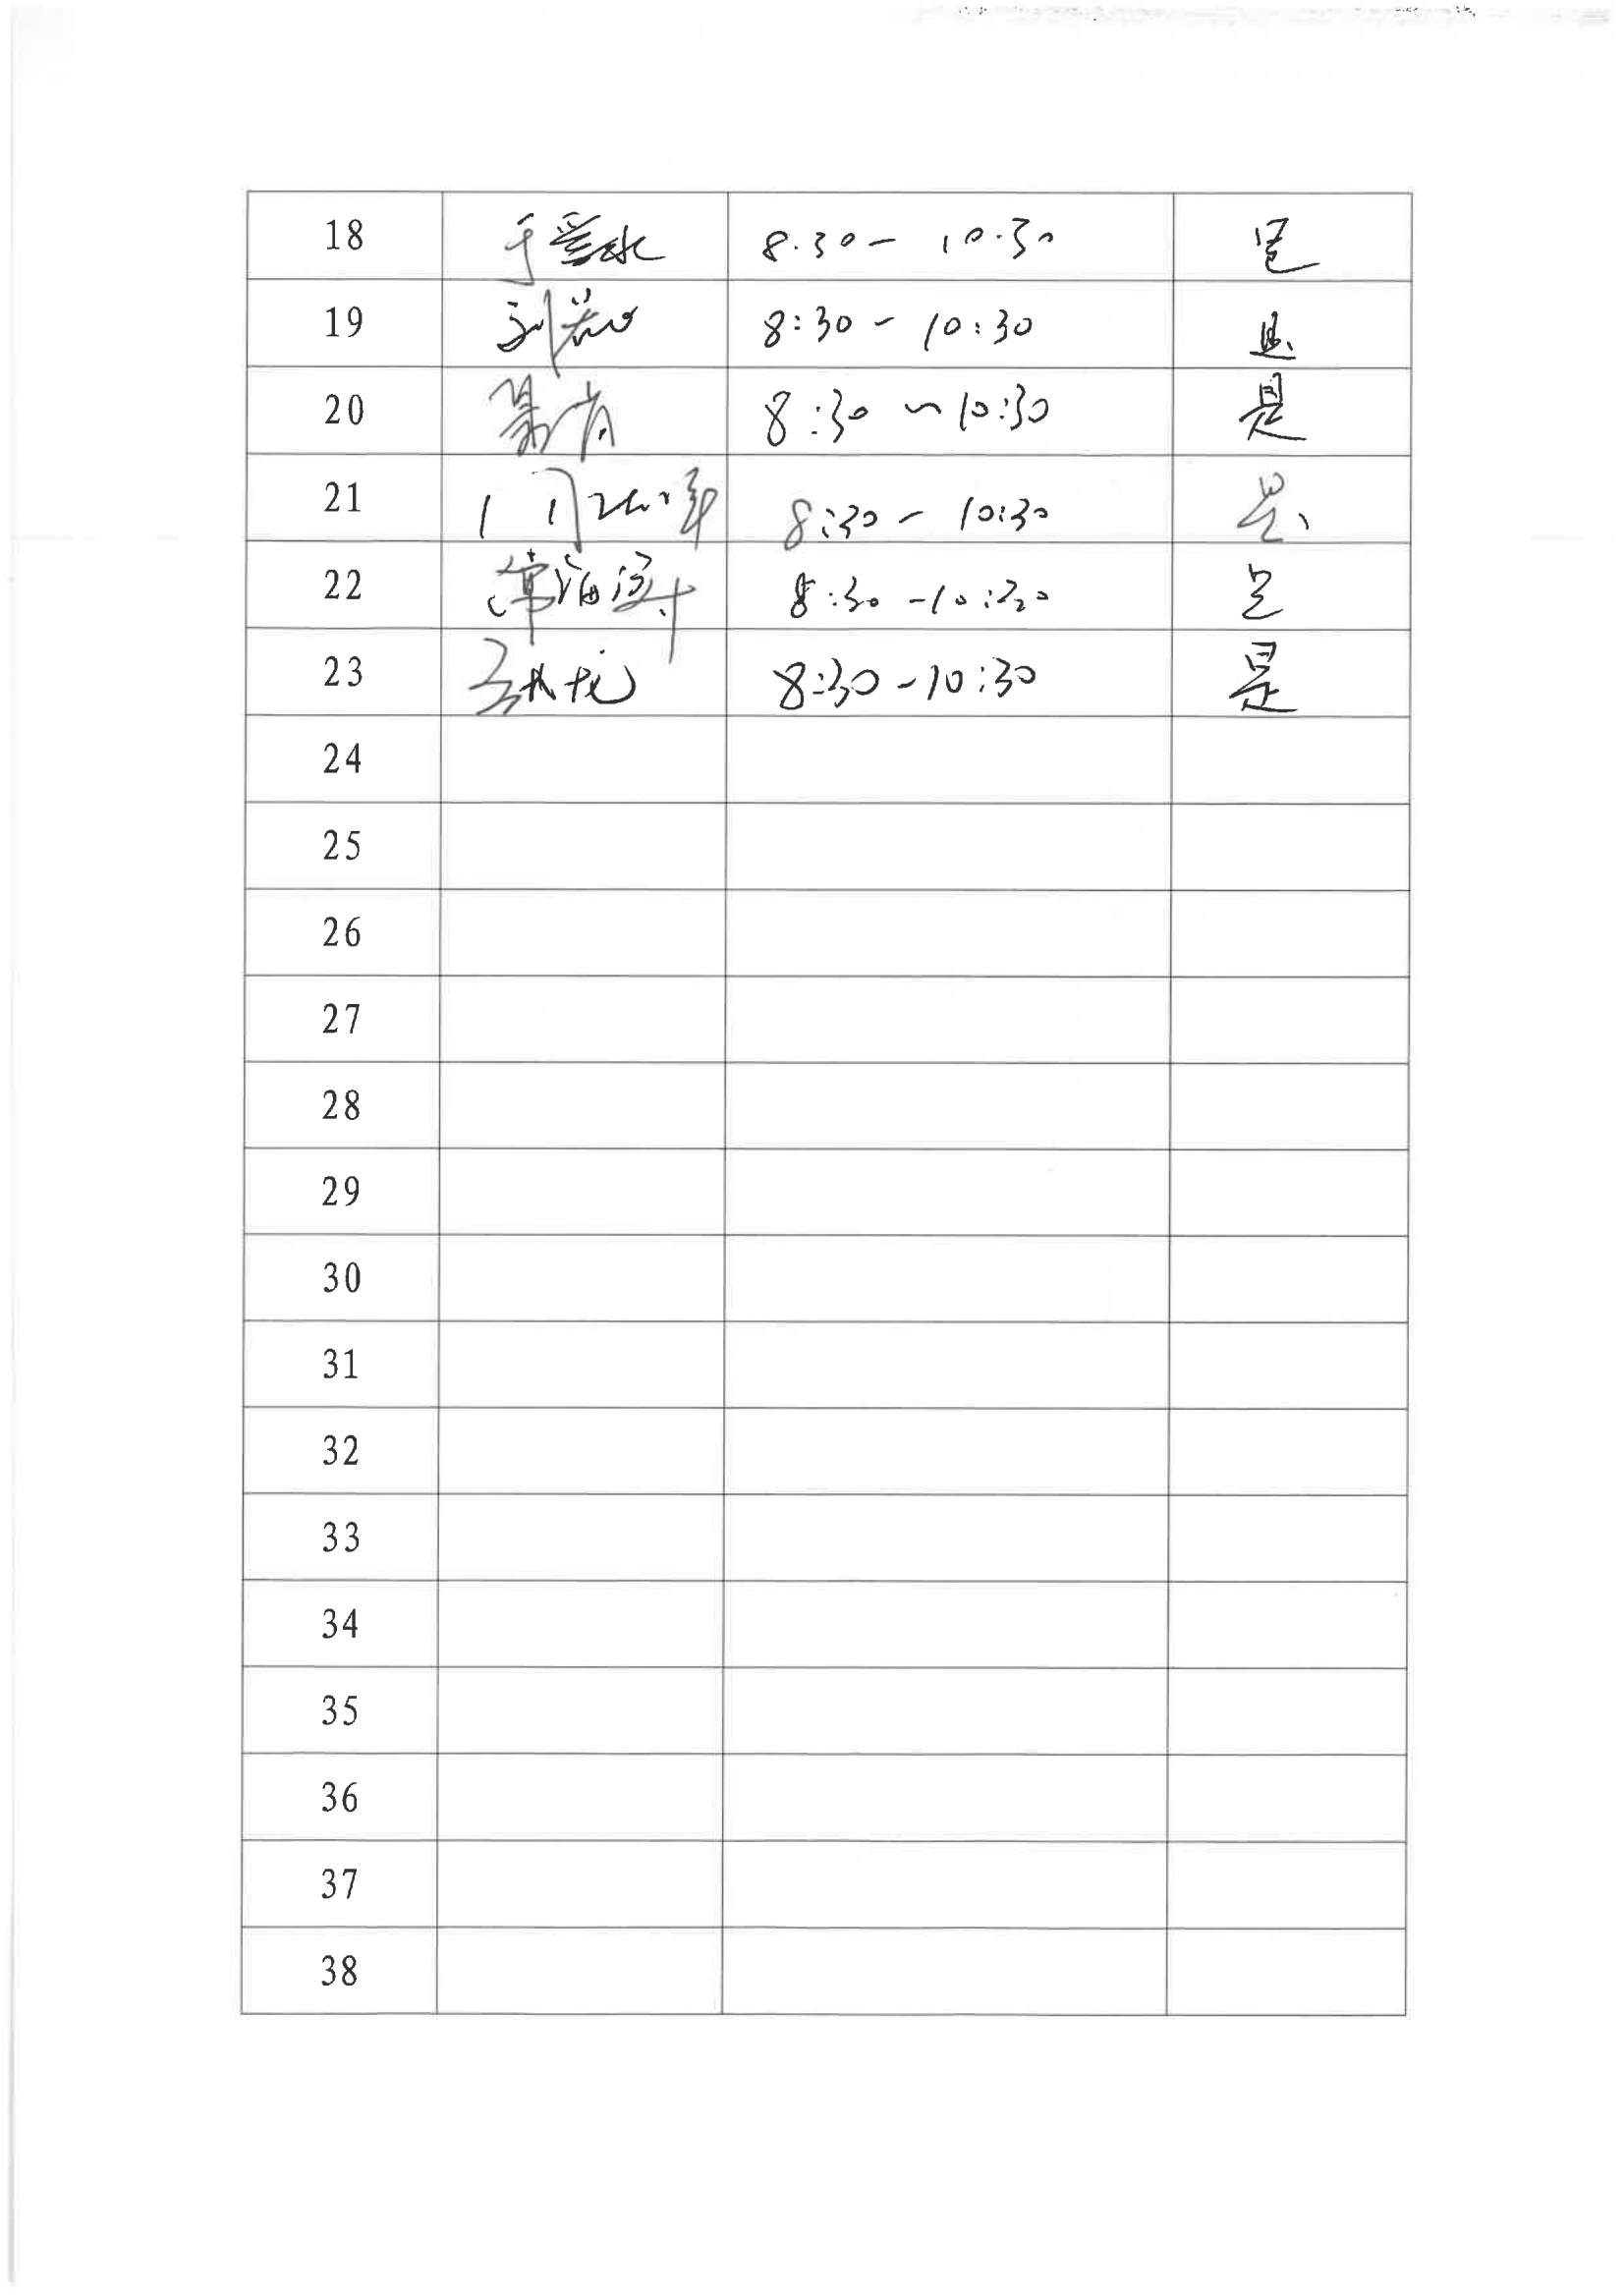 18 于爱水 8:30- 10:30 是
19 刘 8:30-10:30 是
20 8:30~10:30 是
21 8:30-10:30 是
22 常海 8:30-10:30 是
23 龙 8:30-10:30 是
24
25
26
27
28
29
30
31
32
33
34
35
36
37
38